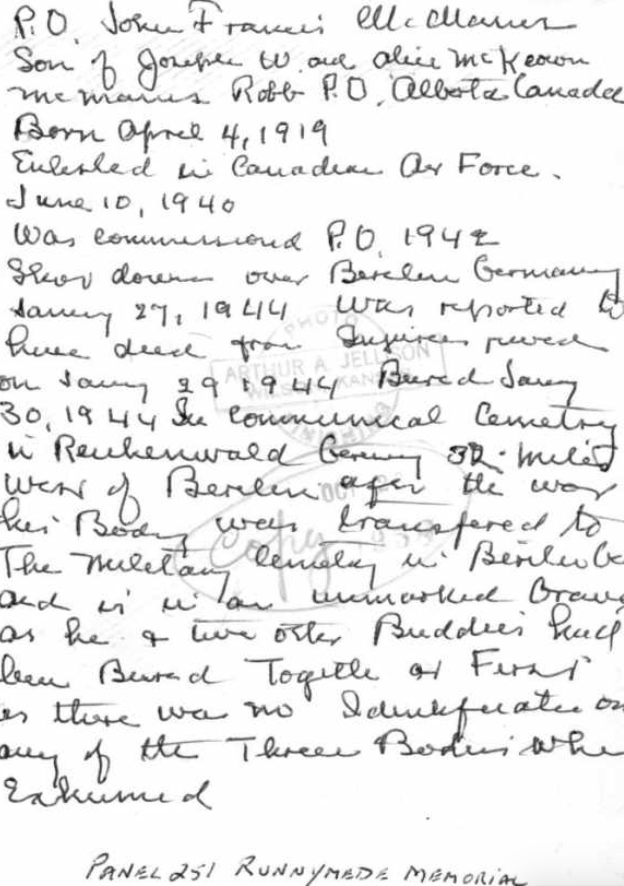 P.O. John Francis McManus
Son of Joseph W. and Alice McKeown
McManus Robb P.O. Alberta Canada
Born April 4, 1919
Enlisted in Canadian Air Force.
June 10, 1940
Was commissioned P.O. 1942
Shot down over Berlin Germany
27, 1944 Was reported to
have died from
on 29 1944 Buried
30, 1944 In communical Cemetry
in Reuhenwald Germany 32 miles
West of Berlin after the war
his Body was transfered to
The Military Cemetery in Berlin
and is in an unmarked Grave
as he & two other Buddies had
been Buried Together at First
as there was no Identification on
any of the Three Bodies when
Exhumed
PHOTO
ARTHUR A JELLISON
KANSAS
Copy
PANEL 251 RUNNYMEDE MEMORIAL